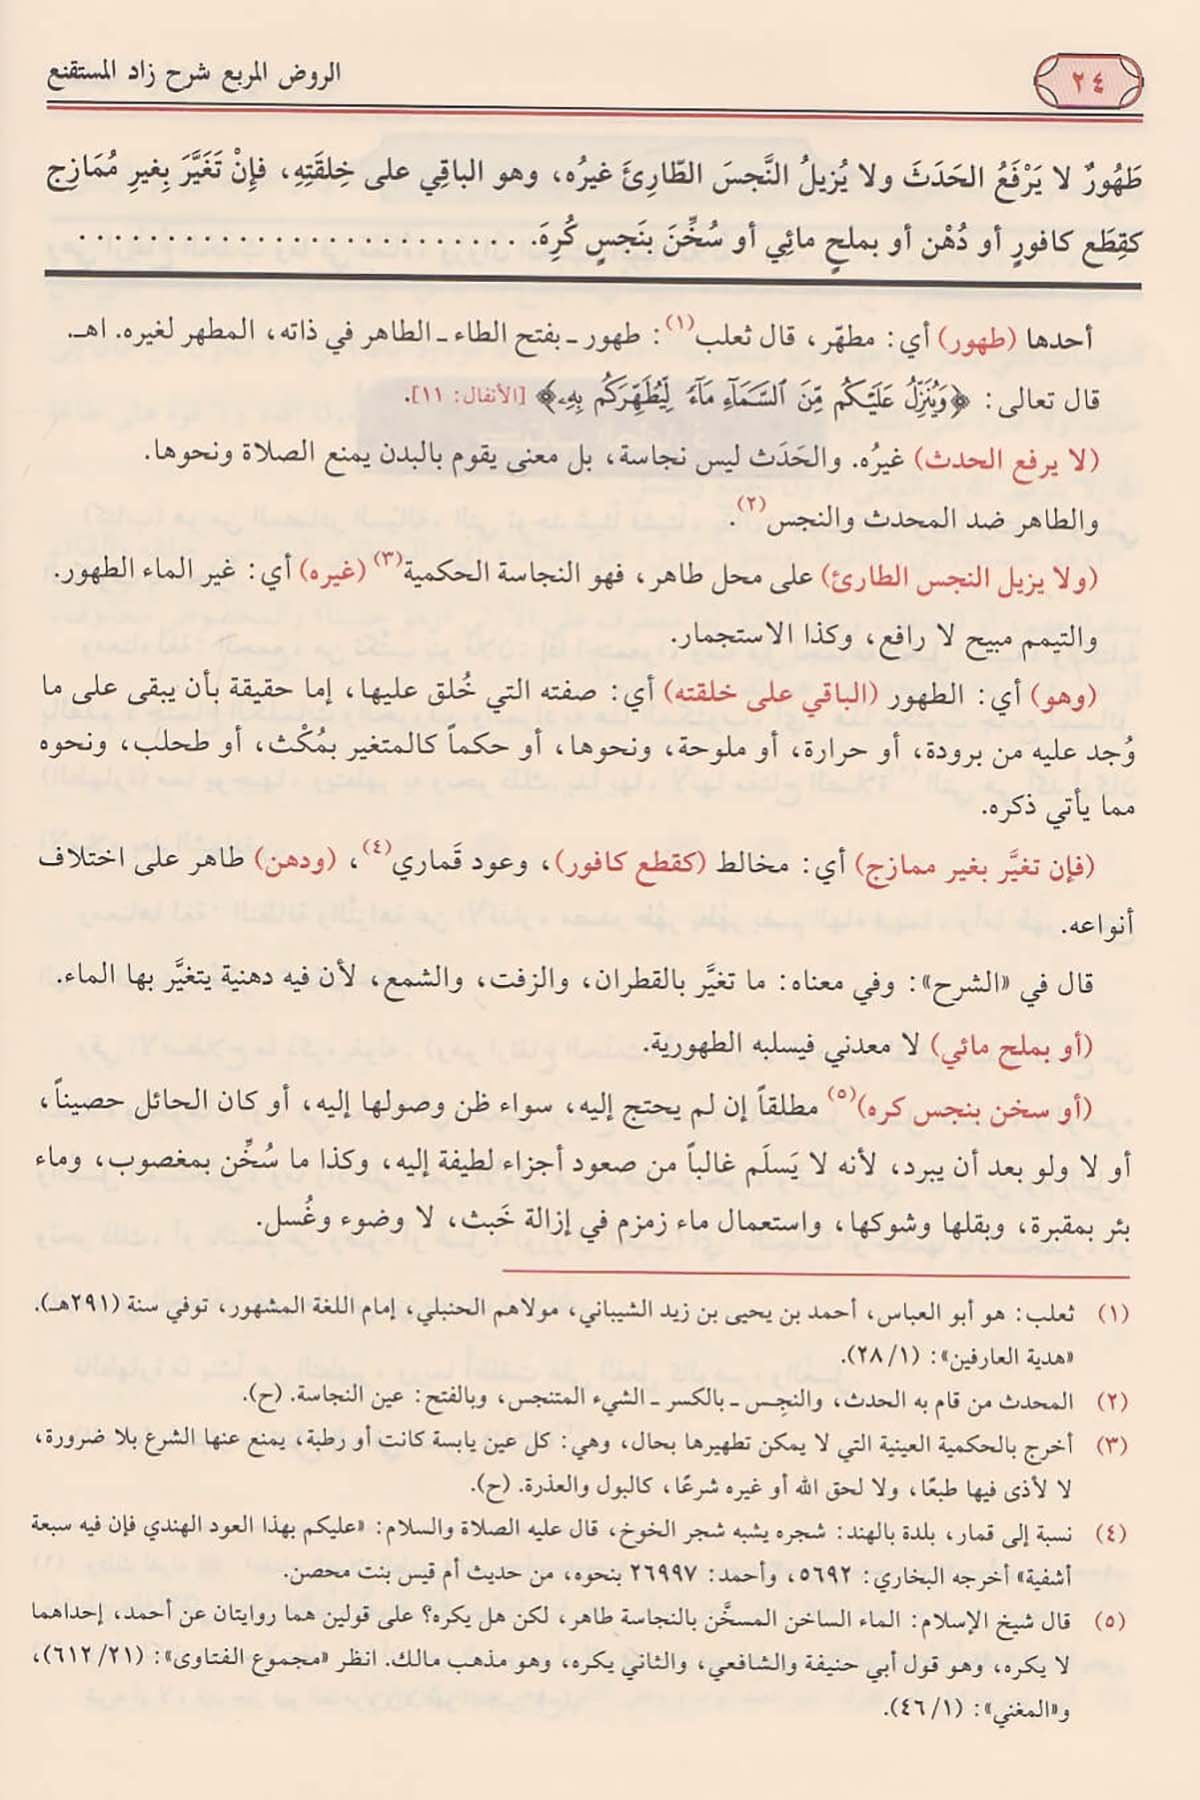 ٢٤
الروض المربع شرح زاد المستقنع
طَهُورٌ لا يَرْفَعُ الحَدَثَ ولا يُزيلُ النَّجسَ الطّارِئَ غيرُه، وهو الباقِي على خِلقَتِهِ، فإِنْ تَغَيَّرَ بِغيرِ مُمَازِجٍ
كقِطَع كافورٍ أو دُهْن أو بملحٍ مائِي أو سُخِّنَ بنَجسٍ كُرِهَ. . . . . . . . . . . . . . . . . . . . . . . . .
أحدها (طهور) أي: مطهّر، قال ثعلب(١): طهور ـ بفتح الطاء ـ الطاهر في ذاته، المطهر لغيره. اهـ.
قال تعالى: ﴿وَيُنَزِّلُ عَلَيْكُم مِّنَ ٱلسَّمَآءِ مَآءً لِّيُطَهِّرَكُم بِهِۦ﴾ [الأنفال: ١١].
(لا يرفع الحدث) غيرُه. والحَدَث ليس نجاسة، بل معنى يقوم بالبدن يمنع الصلاة ونحوها.
والطاهر ضد المحدث والنجس(٢).
(ولا يزيل النجس الطارئ) على محل طاهر، فهو النجاسة الحكمية(٣) (غيره) أي: غير الماء الطهور.
والتيمم مبيح لا رافع، وكذا الاستجمار.
(وهو) أي: الطهور (الباقي على خلقته) أي: صفته التي خُلق عليها، إما حقيقة بأن يبقى على ما
وُجد عليه من برودة، أو حرارة، أو ملوحة، ونحوها، أو حكماً كالمتغير بمُكْث، أو طحلب، ونحوه
مما يأتي ذكره.
(فإن تغيَّر بغير ممازج) أي: مخالط (كقطع كافور)، وعود قَماري(٤)، (ودهن) طاهر على اختلاف
أنواعه.
قال في «الشرح»: وفي معناه: ما تغيَّر بالقطران، والزفت، والشمع، لأن فيه دهنية يتغيَّر بها الماء.
(أو بملح مائي) لا معدني فيسلبه الطهورية.
(أو سخن بنجس كره)(٥) مطلقاً إن لم يحتج إليه، سواء ظن وصولها إليه، أو كان الحائل حصيناً،
أو لا ولو بعد أن يبرد، لأنه لا يَسلَم غالباً من صعود أجزاء لطيفة إليه، وكذا ما سُخِّن بمغصوب، وماء
بئر بمقبرة، وبقلها وشوكها، واستعمال ماء زمزم في إزالة خَبث، لا وضوء وغُسل.
(١) ثعلب: هو أبو العباس، أحمد بن يحيى بن زيد الشيباني، مولاهم الحنبلي، إمام اللغة المشهور، توفي سنة (٢٩١هـ).
«هدية العارفين»: (٢٨/١).
(٢) المحدث من قام به الحدث، والنجِس ـ بالكسر ـ الشيء المتنجس، وبالفتح: عين النجاسة. (ح).
(٣) أخرج بالحكمية العينية التي لا يمكن تطهيرها بحال، وهي: كل عين يابسة كانت أو رطبة، يمنع عنها الشرع بلا ضرورة،
لا لأذى فيها طبعًا، ولا لحق الله أو غيره شرعًا، كالبول والعذرة. (ح).
(٤) نسبة إلى قمار، بلدة بالهند: شجره يشبه شجر الخوخ، قال عليه الصلاة والسلام: «عليكم بهذا العود الهندي فإن فيه سبعة
أشفية» أخرجه البخاري: ٥٦٩٢، وأحمد: ٢٦٩٩٧ بنحوه، من حديث أم قيس بنت محصن.
(٥) قال شيخ الإسلام: الماء الساخن المسخَّن بالنجاسة طاهر، لكن هل يكره؟ على قولين هما روايتان عن أحمد، إحداهما
لا يكره، وهو قول أبي حنيفة والشافعي، والثاني يكره، وهو مذهب مالك. انظر «مجموع الفتاوى»: (٦١٢/٢١)،
و«المغني»: (٤٦/١).